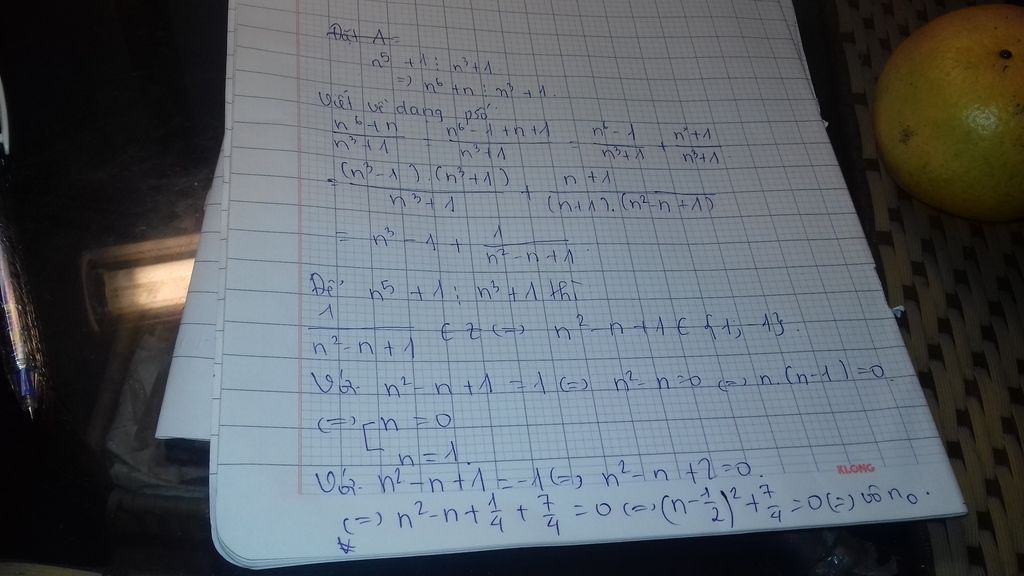 Đặt A =
n⁵ + 1 ⋮ n³ + 1
=> n⁶ + n ⋮ n³ + 1.
Viết về dạng psố:
(n⁶ + n)/(n³ + 1) = (n⁶ - 1 + n + 1)/(n³ + 1) = (n⁶ - 1)/(n³ + 1) + (n + 1)/(n³ + 1)
= ((n³ - 1).(n³ + 1))/(n³ + 1) + (n + 1)/((n + 1).(n² - n + 1))
= n³ - 1 + 1/(n² - n + 1).
Để n⁵ + 1 ⋮ n³ + 1 thì
1/(n² - n + 1) ∈ Z <=> n² - n + 1 ∈ {1; -1}.
Với n² - n + 1 = 1 <=> n² - n = 0 <=> n.(n - 1) = 0
<=> [n = 0
n = 1.
Với n² - n + 1 = -1 <=> n² - n + 2 = 0.
<=> n² - n + 1/4 + 7/4 = 0 <=> (n - 1/2)² + 7/4 = 0 <=> vô no.
KLONG